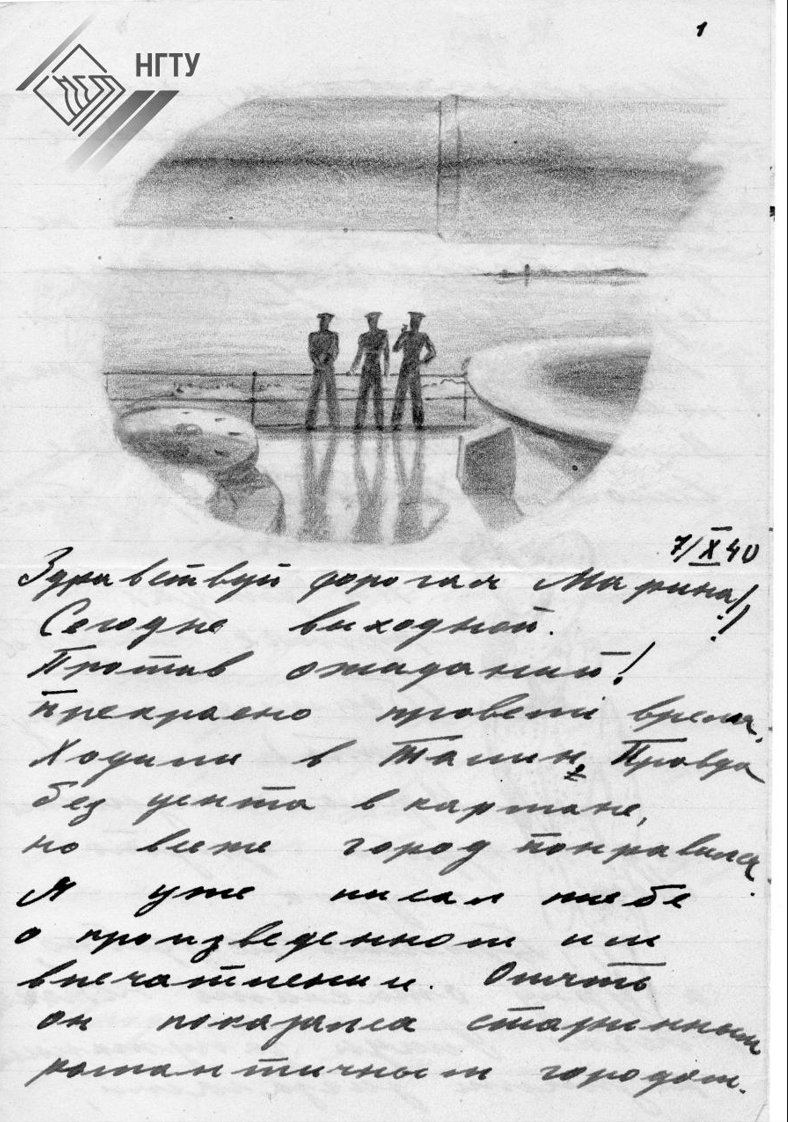 1
НГТУ
7/X 40
Здравствуй дорогая Марина!
Сегодня выходной.
Против ожаданий!
Прекрасно провели время.
Ходили в Талин. Правда
без цента в кармане,
но всеже город понравился.
Я уже писал тебе
о произведенном им
впечатлении. Опять
он показался старинным
романтичным городом.